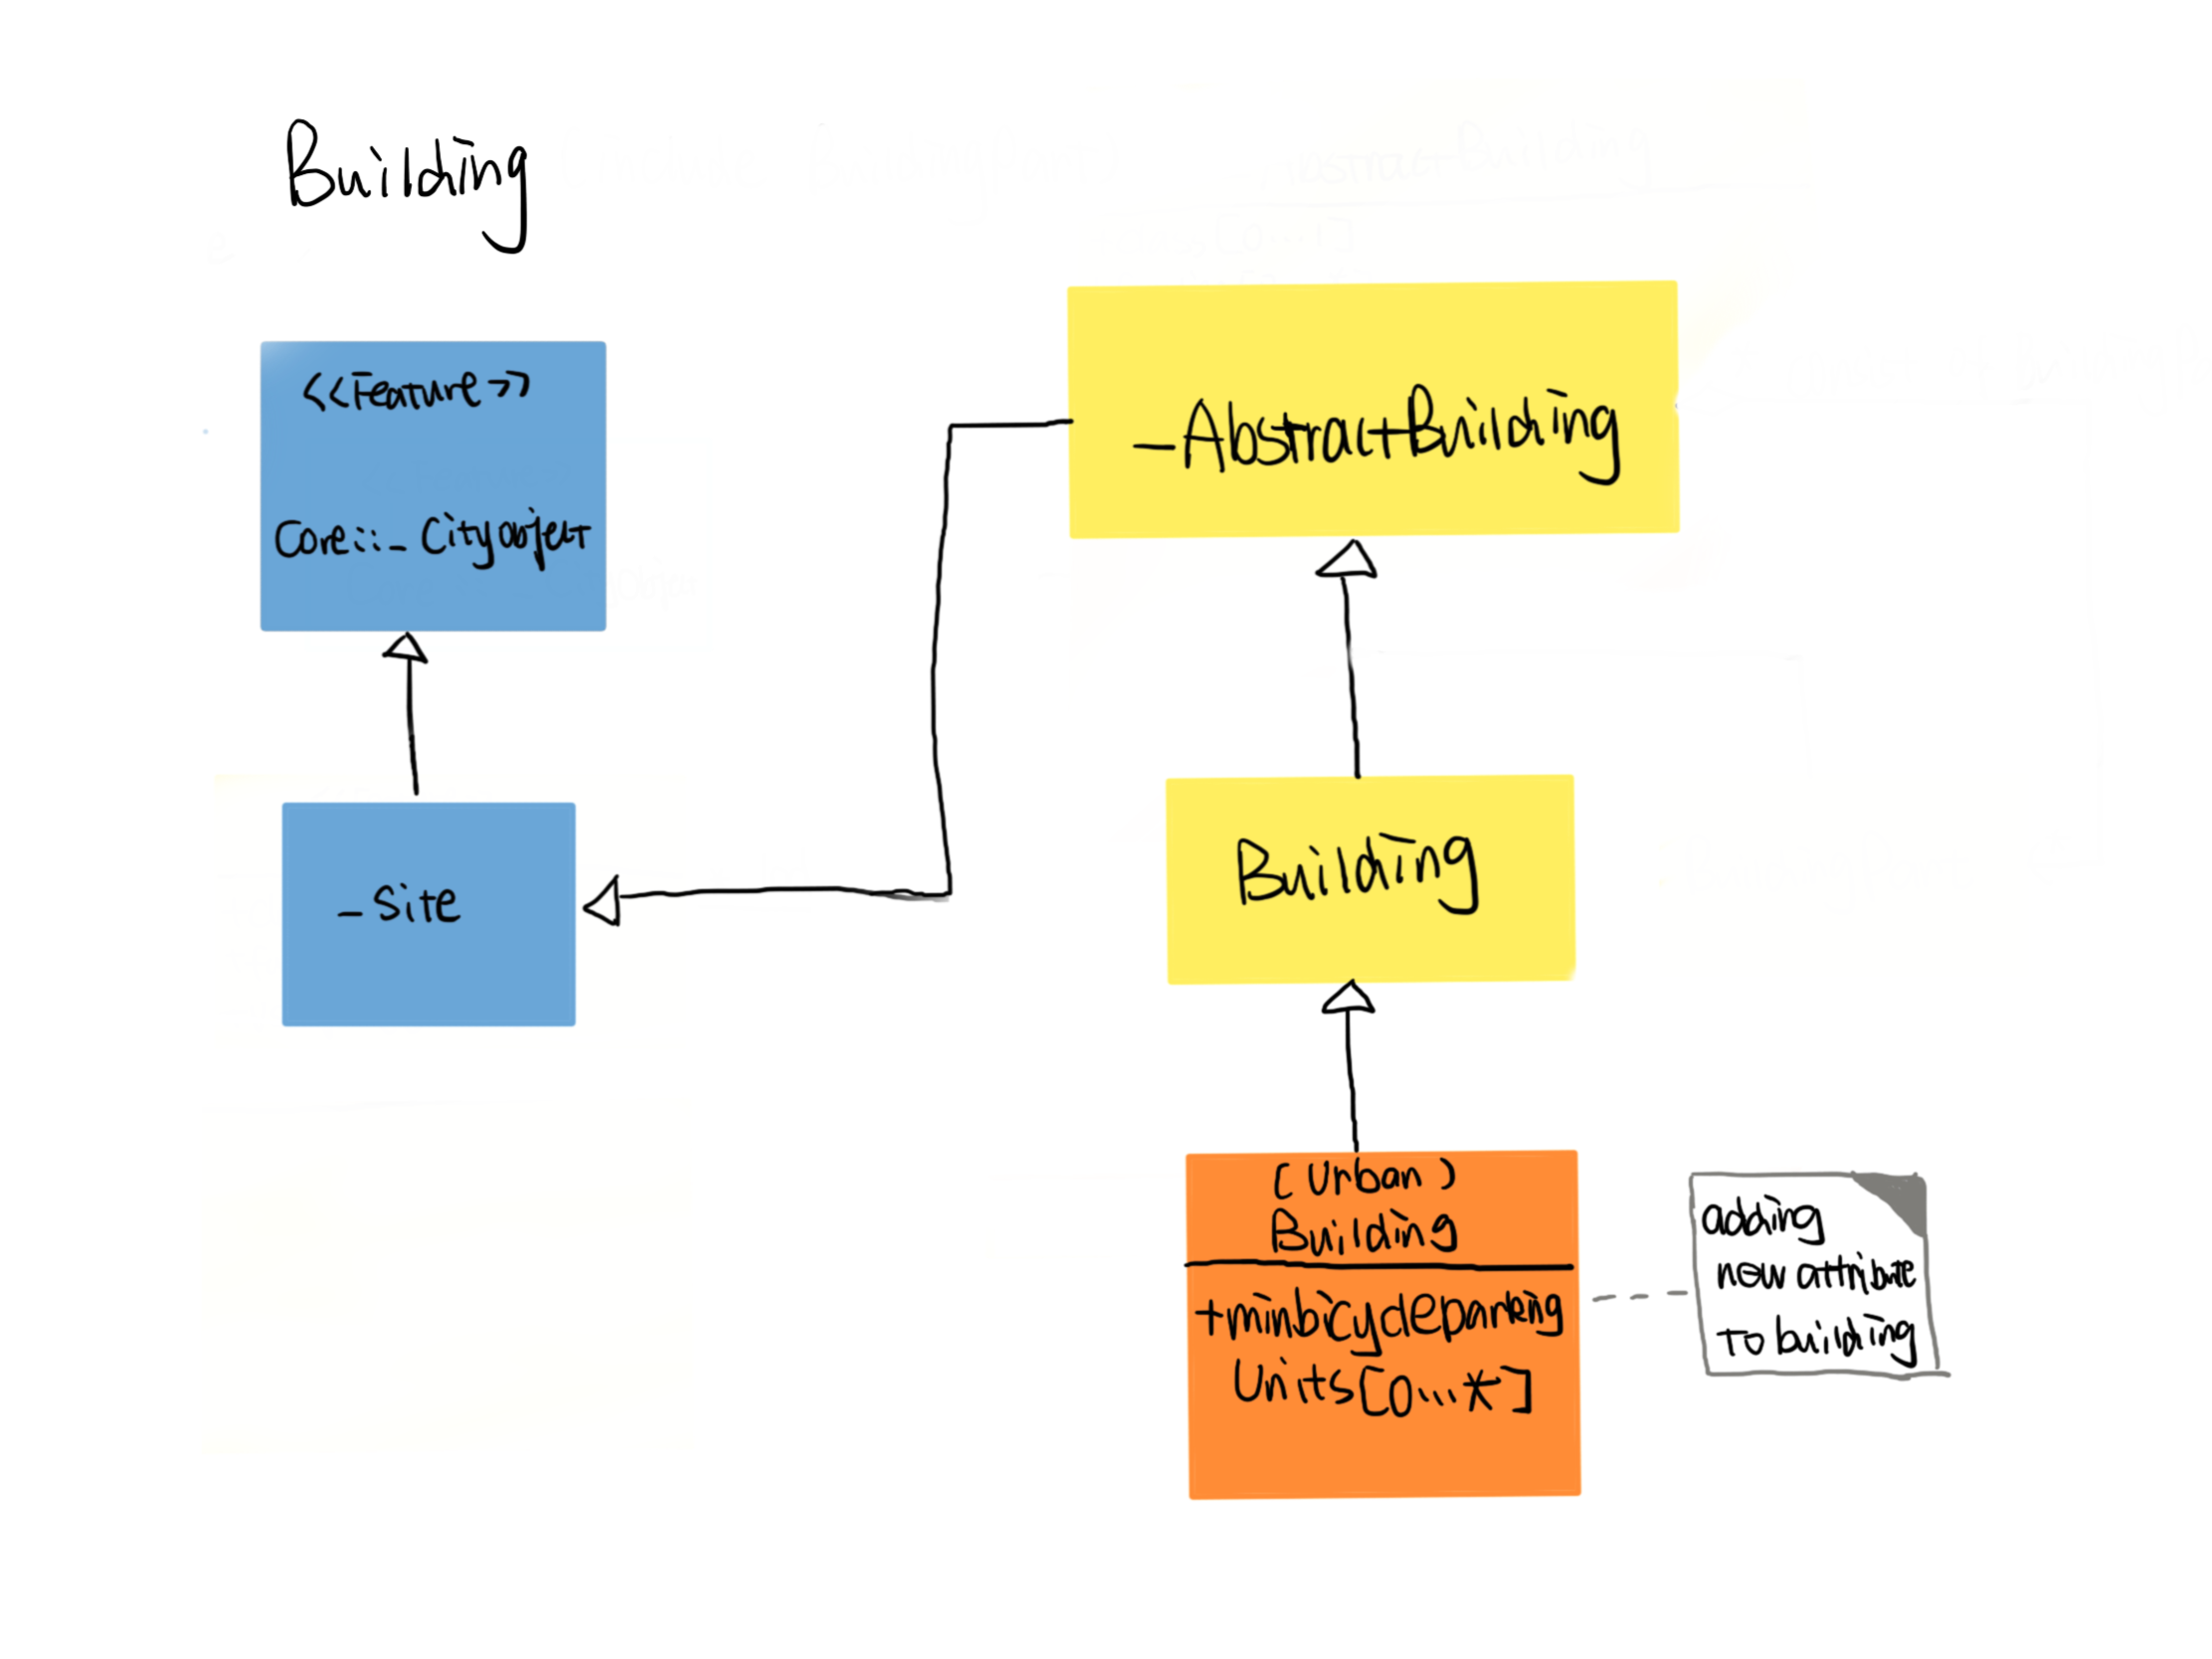 Building
<<Feature>>
Core::_Cityobject
_AbstractBuilding
_Site
Building
(Urban)
Building
+minbicycleparking
Units[0...*]
adding
new attribute
to building